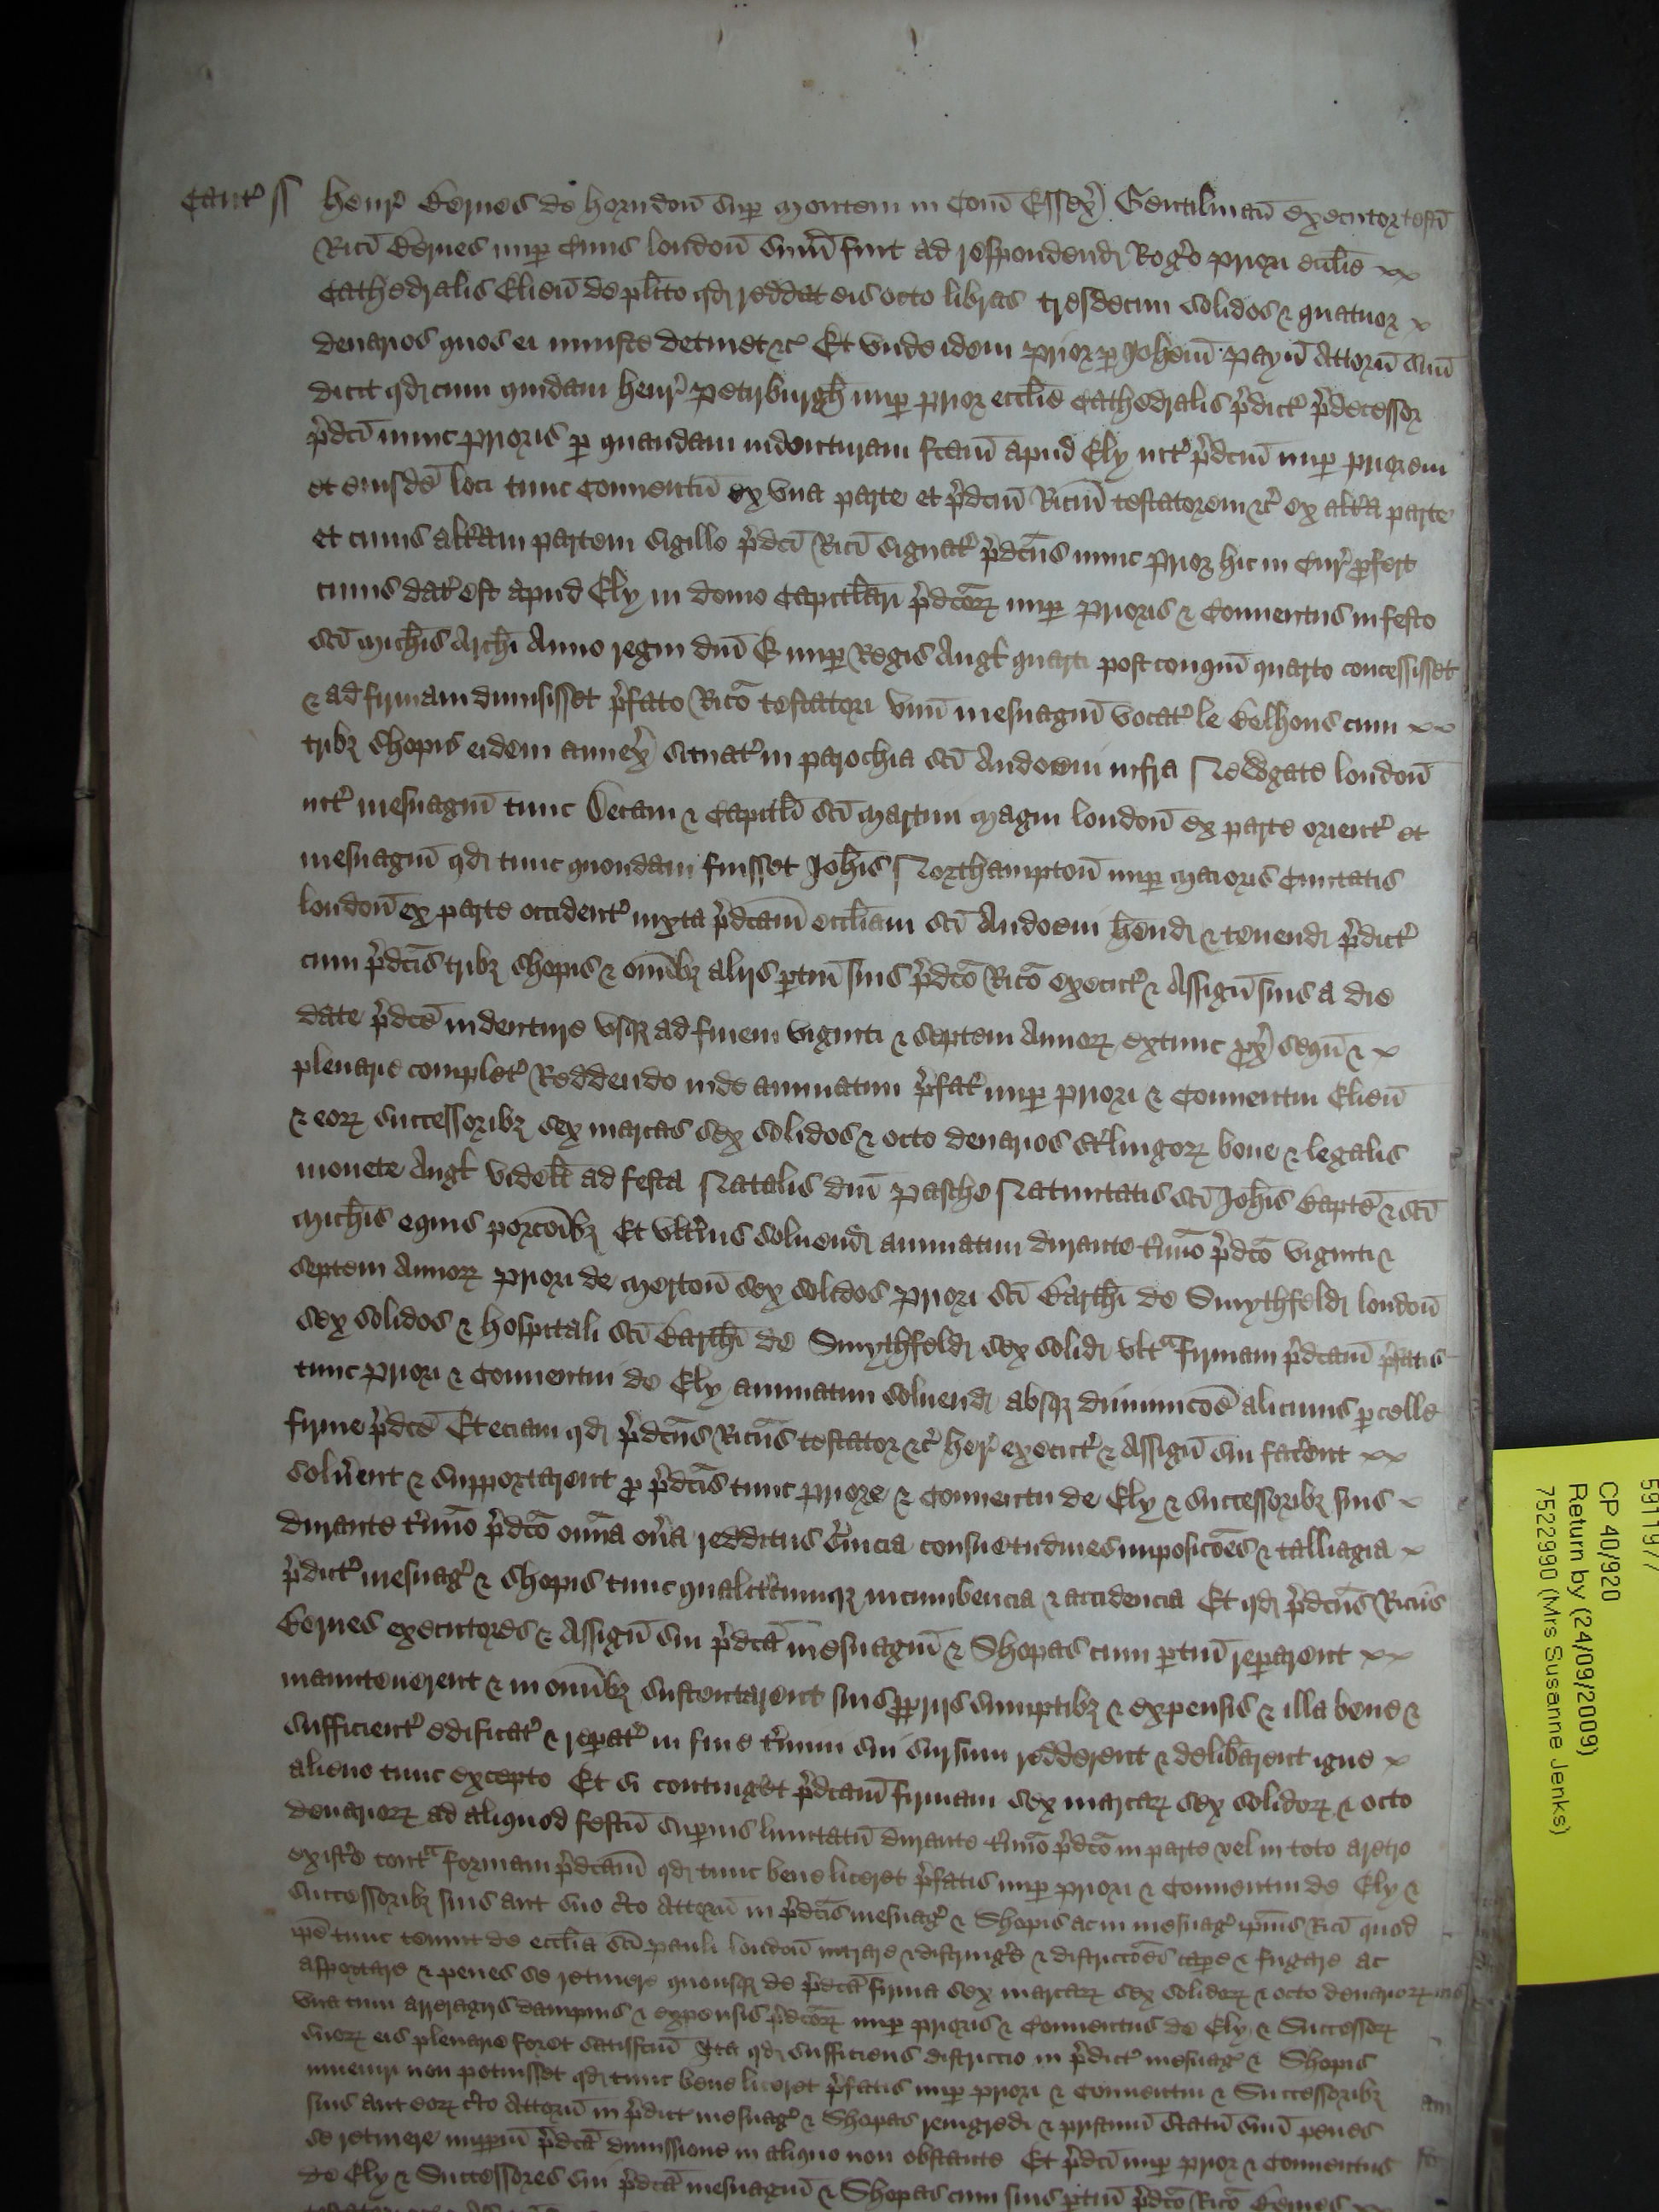 Cant' ss Henr' Bernes de horndon sup montem in Com Essex' Gentilman executor testi
Rici Bernes nup Civis london sum fuit ad respondend Rog'o priori ecclie xx
Cathedralis Elien de plito qd reddat eis octo libras tresdecim solidos & quatuor x
denarios quos ei iniuste detinet &c Et unde idem prior p Johem Payn Attorn suu
dicit qd cum quidam Henr' Peturburgh nup prior ecclie Cathedralis p'dict' p'decessor
p'dci nunc prioris p quandam indenturam fcam apud Ely int' p'dcm nup priorem
et eiusde loci tunc Conventu ex una parte et p'dcm Ricm testatorem &c ex alt'a parte
et cuius alt'am partem sigillo p'dci Rici signat' p'dcus nunc prior hic in Cur' profert
cuius dat' est apud Ely in domo Capitlari p'dcor nup prioris & Conventus in festo
Sci Michis Archi Anno regni dni E nup Regis Angl quarti post conqm quarto concessisset
& ad firmam dimisisset p'fato Rico testatori unu mesuagiu vocat' le Belhous cum xx
tribz shopis eidem annex' situat' in parochia Sci Audoeni infra Newgate london
int' mesuagiu tunc Decani & Capitli Sci Martini Magni london ex parte orient' et
mesuagiu qd tunc quondam fuisset Johis Northampton nup Maioris Civitatis
london ex parte occident' iuxta p'dcam eccliam Sci Audoeni hend & tenend p'dict'
cum p'dcis tribz shopis & omibz aliis ptin suis p'dco Rico execut' & Assign suis a die
date p'dce indenture usqz ad finem viginti & septem Annor extunc prox' sequ & x
plenarie complet' Reddendo inde annuatim p'fat' nup priori & Conventui Elien
& eor successoribz sex marcas sex solidos & octo denarios st'lingor bone & legalis
monete Angl videlt ad festa Natalis dni Pasche Nativitatis Sci Johis Bapte & Sci
Michis equis porcoibz Et ult'ius solvend annuatim durante t'mio p'dco viginti &
septem Annor priori de Merton sex solidos priori Sci Barthi de Smythfeld london
sex solidos & hospitali Sci Barthi de Smythfeld sex solid ult'a firmam p'dcam p'fatis
tunc priori & Conventui de Ely annuatim solvend absqz diminucoe alicuius pcelle
firme p'dce Et eciam qd p'dcus Ricus testator &c her' execut' & Assign sui fac'ent xx
solv'ent & supportarent p p'dcis tunc priore & Conventu de Ely & successoribz suis x
durante t'mio p'dco omia on'a redditus s'vicia consuetudines imposicoes & talliagia x
p'dict' mesuag' & shopis tunc qualit'cumqz incumbencia & accidencia Et qd p'dcus Ricus
Bernes executores & Assign sui p'dca mesuagiu & Shopas cum ptin reparent xx
manutenerent & in omibz sustentarent suis propriis sumptibz & expensis & illa bene &
sufficient' edificat' & reparat' in fine t'mini sui sursum redderent & delib'arent igne x
alieno tunc excepto Et si conting'et p'dcam firmam sex marcar sex solidor & octo
denarior ad aliquod festu superius limitatu durante t'mio p'dco in parte vel in toto aretro
exist'e cont'a formam p'dcam qd tunc bene liceret p'fatis nup priori & Conventui de Ely &
successoribz suis aut suo c'to Attorn in p'dcis mesuag' & Shopis ac in mesuag' ipius Rici quod
ipe tunc tenuit de ecclia Sci Pauli london intrare & distring'e & districcoes cap'e & fugare ac
asportare & penes se retinere quousqz de p'dca firma sex marcar sex solidor & octo denarior
una cum arreragiis dampnis & expensis p'dcor nup prioris & Conventus de Ely & Successor
suor eis plenarie foret satisfcm Ita qd sufficiens districcio in p'dict' mesuag' & Shopis
inveniri non potuisset qd tunc bene liceret p'fatis nup priori & Conventui & Successoribz
suis aut eor c'to Attorn in p'dict' mesuag' & Shopas reingredi & pristinu statu suu penes
se retinere p'dca dimissione in aliquo non obstante Et p'dci nup prior & Conventus
de Ely & Successores sui p'dca mesuagiu & Shopas cum suis ptin p'dco Rico Bernes xx
5911977
CP 40/920
Return by (24/09/2009)
7522990 (Mrs Susanne Jenks)